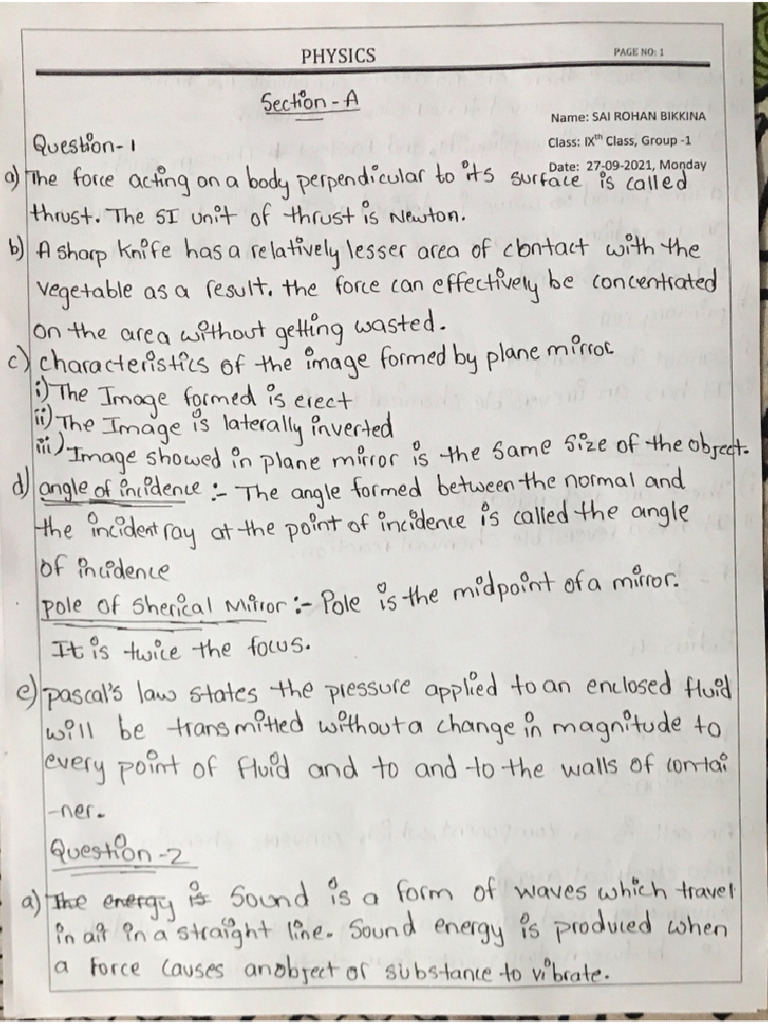 PHYSICS
PAGE NO: 1
Section - A
Name: SAI ROHAN BIKKINA
Question - 1
Class: IXth Class, Group -1
Date: 27-09-2021, Monday
a) The force acting on a body perpendicular to its surface is called
thrust. The SI unit of thrust is Newton.
b) A sharp knife has a relatively lesser area of contact with the
vegetable as a result. the force can effectively be concentrated
on the area without getting wasted.
c) characteristics of the image formed by plane mirror
i) The Image formed is erect
ii) The Image is laterally inverted
iii) Image showed in plane mirror is the same size of the object.
d) angle of incidence :- The angle formed between the normal and
the incident ray at the point of incidence is called the angle
of incidence
pole of Sherical Mirror :- Pole is the midpoint of a mirror.
It is twice the focus.
e) pascal's law states the pressure applied to an enclosed fluid
will be transmitted without a change in magnitude to
every point of fluid and to and to the walls of contai
-ner.
Question - 2
a) The energy is Sound is a form of waves which travel
in air in a straight line. Sound energy is produced when
a force causes an object or substance to vibrate.